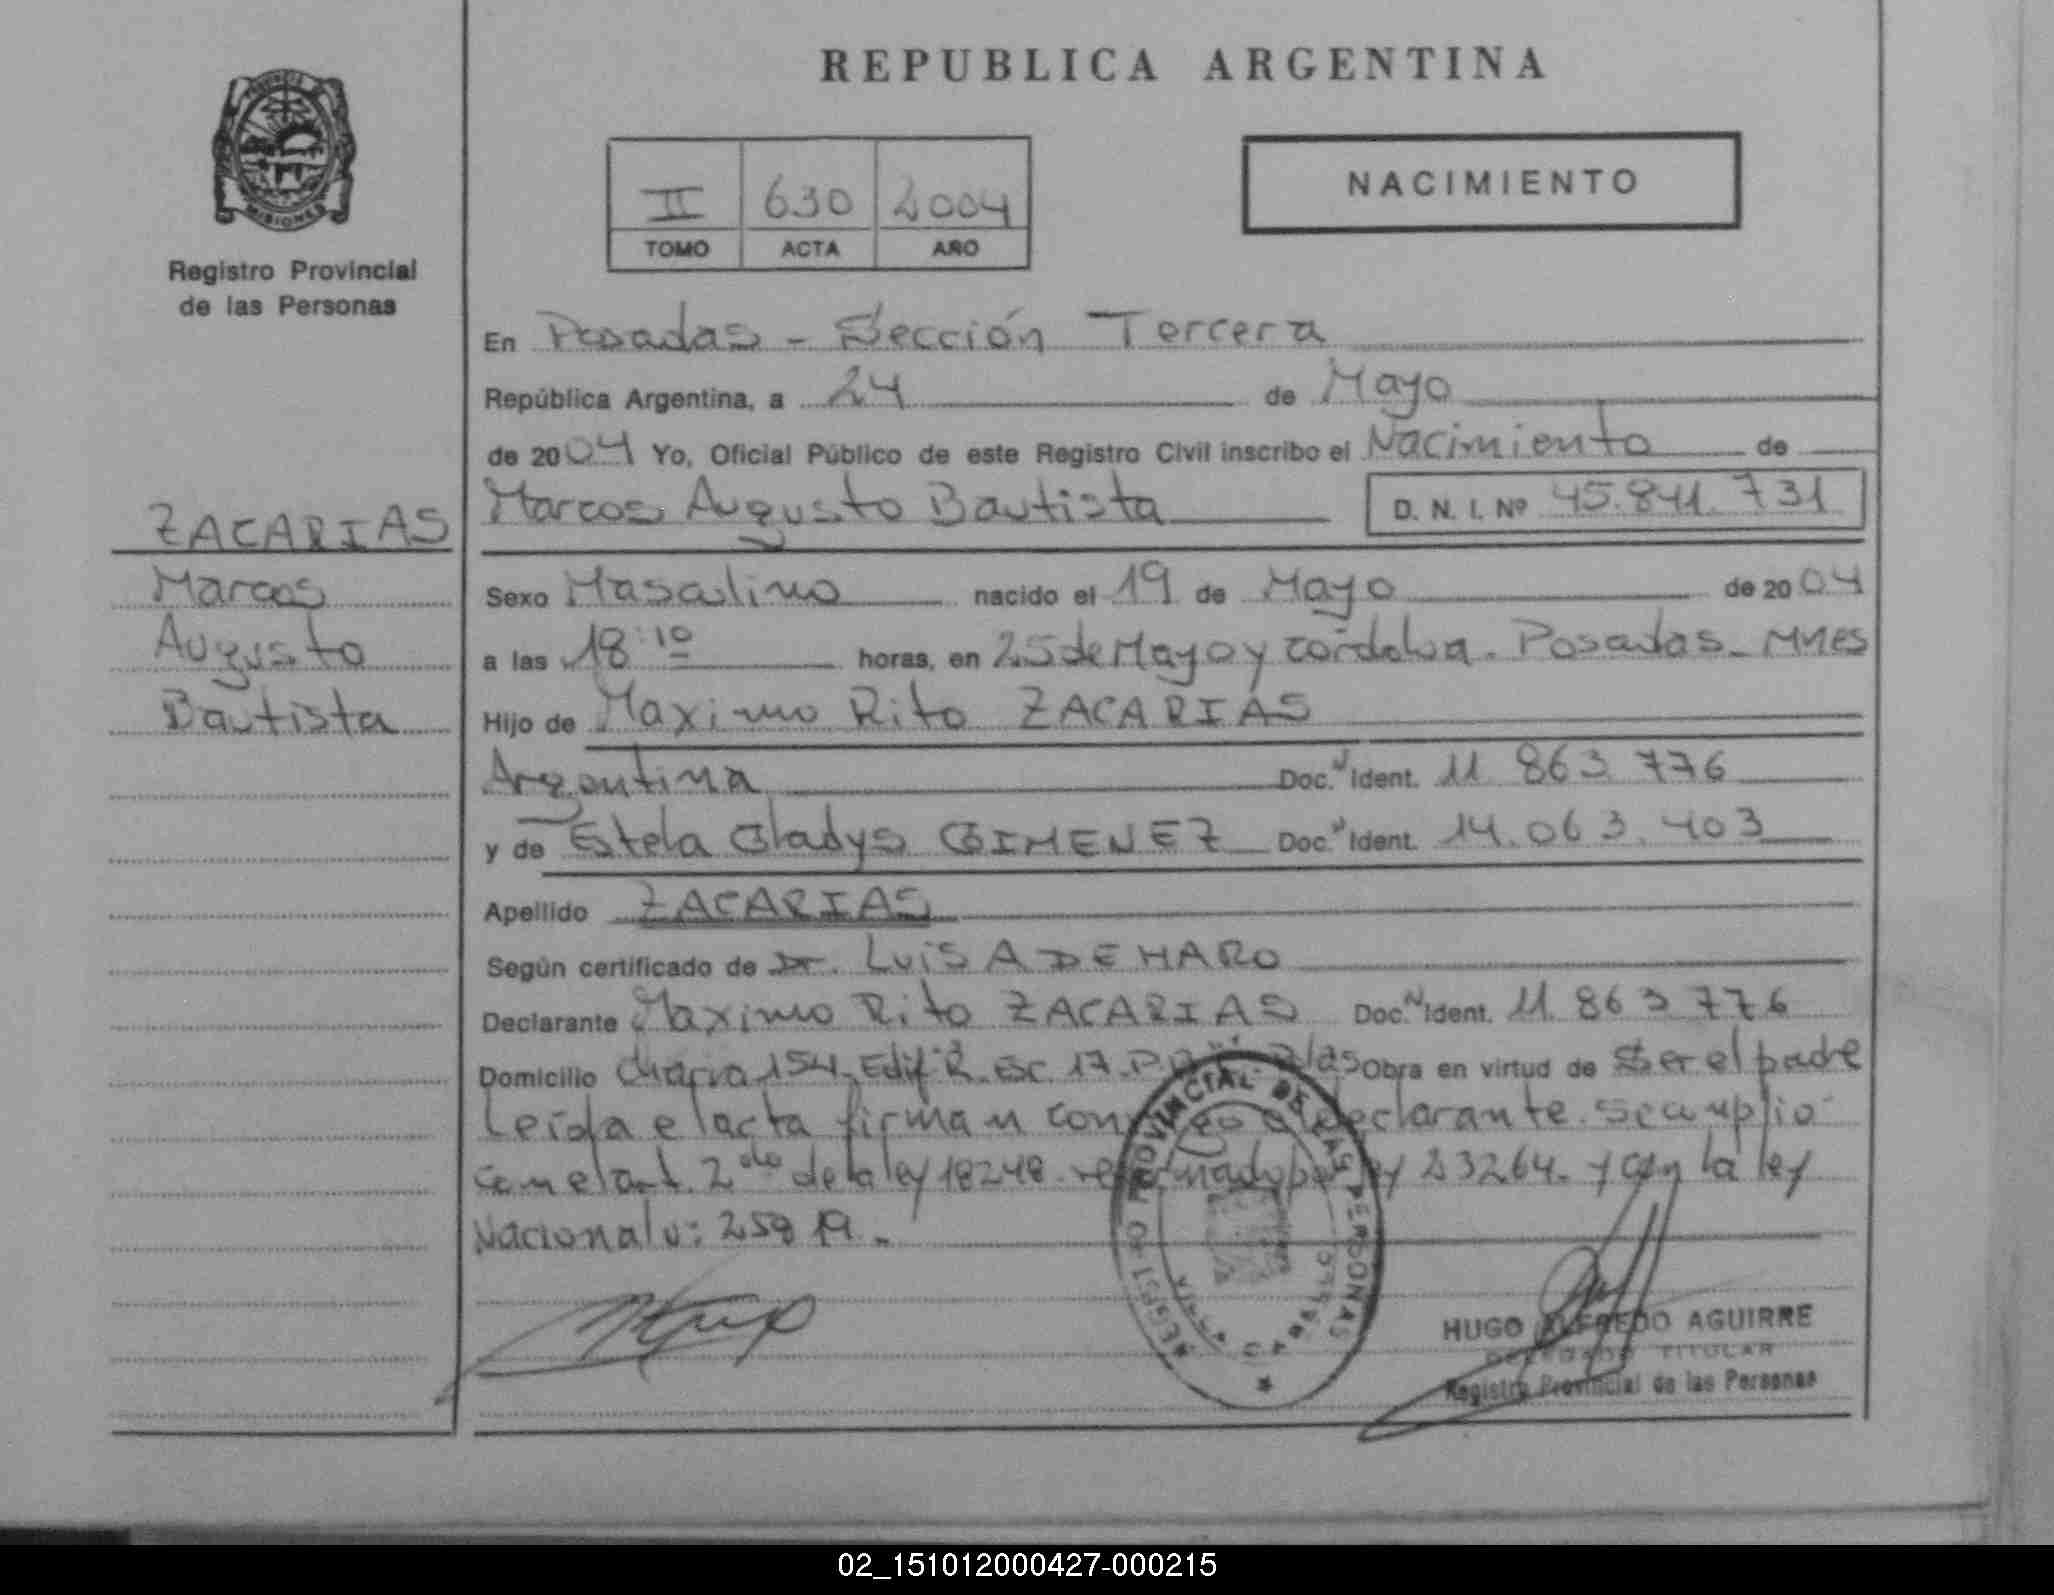 REPUBLICA ARGENTINA
PROVINCIA DE
MISIONES
Registro Provincial
de las Personas
II 630 2004
TOMO ACTA AÑO
NACIMIENTO
En Posadas - Sección Tercera
República Argentina, a 24 de Mayo
de 2004 Yo, Oficial Público de este Registro Civil inscribo el Nacimiento de
ZACARIAS
Marcos
Augusto
Bautista
Marcos Augusto Bautista D. N. I. Nº 45.841.731
Sexo Masculino nacido el 19 de Mayo de 2004
a las 18:10 horas, en 25 de Mayo y Cordoba. Posadas - Mnes
Hijo de Maximo Rito ZACARIAS
Argentina Doc. N Ident. 11 863 776
y de Estela Gladys GIMENEZ Doc. N Ident. 14.063.403
Apellido ZACARIAS
Según certificado de Dr. LUIS A DE HARO
Declarante Maximo Rito ZACARIAS Doc. N Ident. 11 863 776
Domicilio Chacra 154. Edif. R. Esc 17. Obra en virtud de Ser el padre
Leída el acta firman declarante. Se cumplio
con el art. 2do de la ley 18248. ley 23264. y con la ley
Nacional
REGISTRO PROVINCIAL DE LAS PERSONAS
HUGO ALFREDO AGUIRRE
DELEGADO TITULAR
Registro Provincial de las Personas
02_151012000427-000215